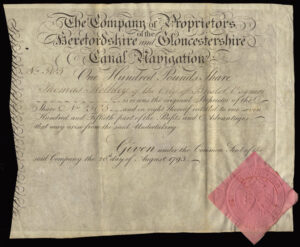 The Company of Proprietors
of the
Herefordshire and Gloucestershire
Canal Navigation
No.
One Hundred Pounds Share
Thomas of the City of Esquire
is the original Proprietor of the
Share No. and is thereof entitled to one
Hundred and Fiftieth part of the Profits and Advantages
that may arise from the said Undertaking
Given under the Common Seal of the
said Company the 20th day of August 1793.